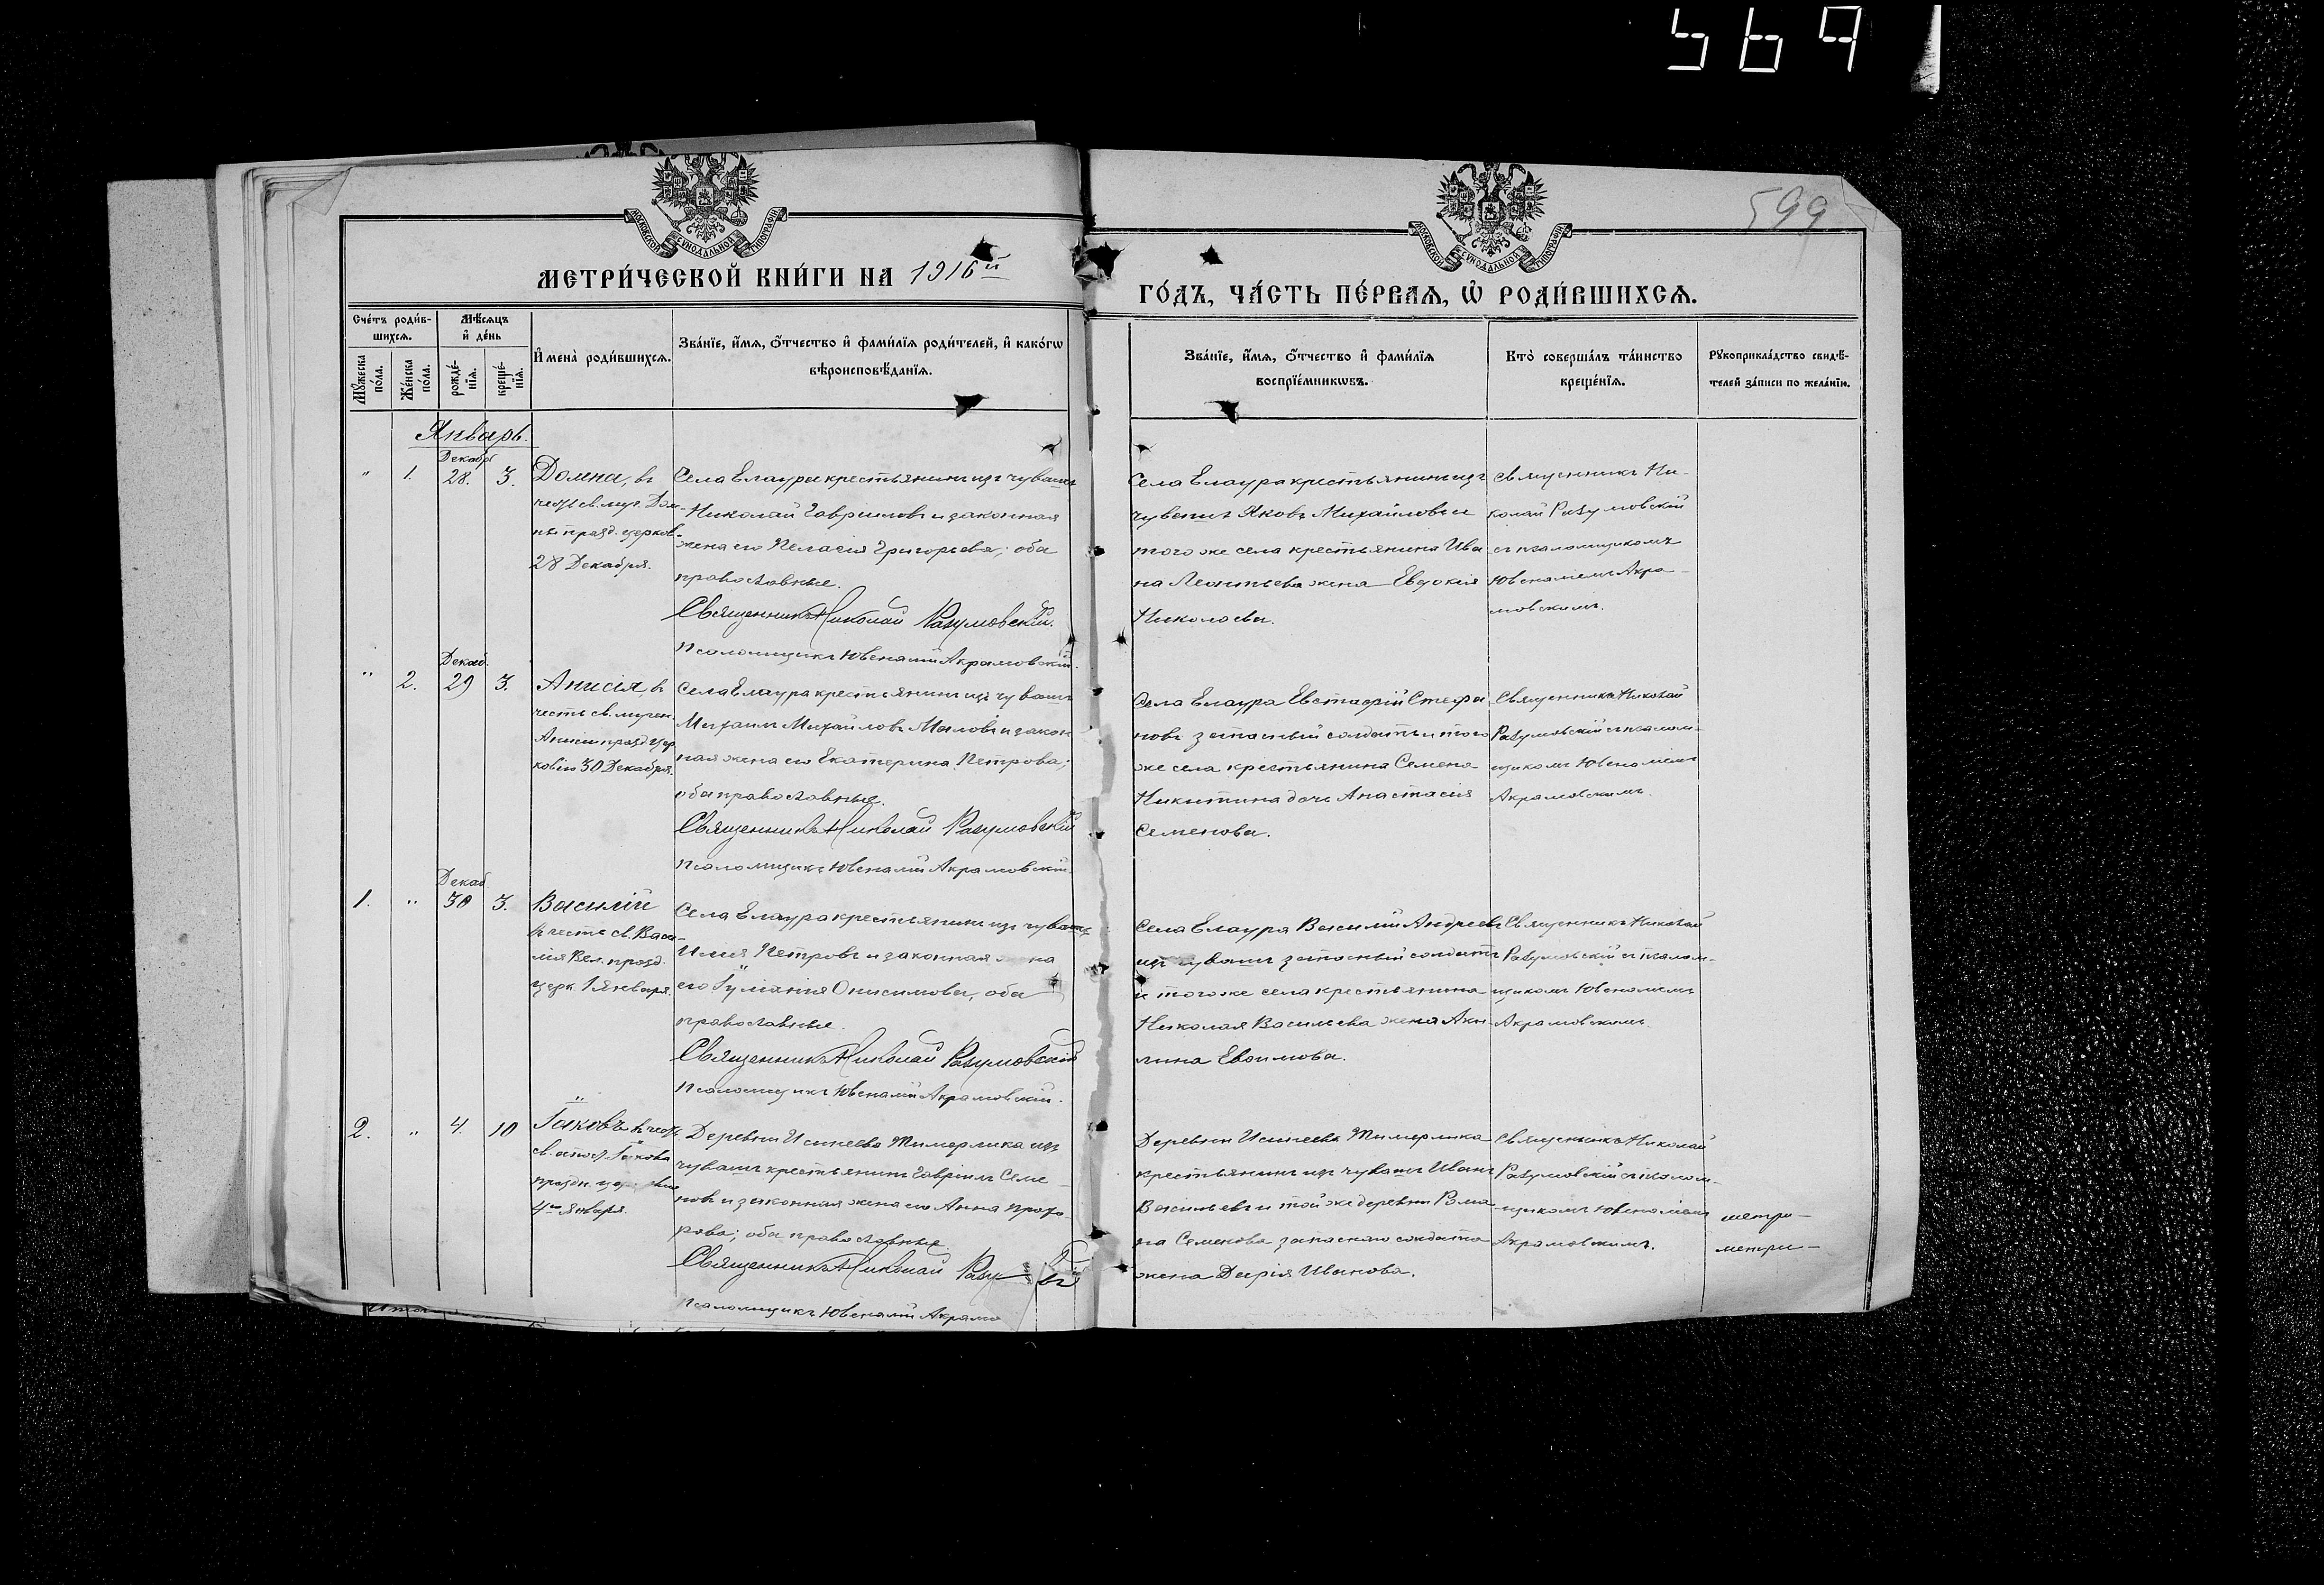 569
599
МОСКОВСКОЙ СѴНОДАЛЬНОЙ ТИПОГРАФІИ
МОСКОВСКОЙ СѴНОДАЛЬНОЙ ТИПОГРАФІИ
МЕТРИ́ЧЕСКОЙ КНИ́ГИ НА 1916й
ГО́ДЪ, ЧА́СТЬ ПЕ́РВАѦ, Ѡ҆ РОДИ́ВШИХСѦ.
Сче́тъ роди́в-
шихсѧ.
Мꙋ́жеска
по́ла.
Же́нска
по́ла.
Мѣ́сѧцъ
и҆ де́нь
рожде́-
нїѧ.
креще́-
нїѧ.
И҆мена̀ роди́вшихсѧ.
Зва́нїе, и҆́мѧ, ѻ҆́тчество и҆ фами́лїѧ роди́телей, и҆ како́гѡ
вѣроисповѣ́данїѧ.
Зва́нїе, и҆́мѧ, ѻ҆́тчество и҆ фами́лїѧ
воспрїе́мникѡвъ.
Кто̀ соверша́лъ та́инство
креще́нїѧ.
Рꙋкоприкла́дство свидѣ́-
телей за́писи по жела́нїю.
Январь.
" 1. Декабр 28. 3.
Домна, въ
честь св. муч. Дом-
ны празд. церков-
28 Декабря.
Села Елаура крестьянинъ изъ чувашъ
Николай Гавриловъ и законная
жена его Пелагія Григорьева; оба
православные.
Священникъ Николай Разумовскій.
Псаломщикъ Ювеналій Акрамовскій.
Села Елаура крестьянинъ изъ
чувашъ Яковъ Михайловъ и
того же села крестьянина Ива
на Леонтьева жена Евдокія
Николаева.
Священникъ Ни-
колай Разумовскій
съ псаломщикомъ
Ювеналіемъ Акра-
мовскимъ.
" 2. Декаб. 29 3.
Анисія, въ
честь св. мучен.
Анисіи празд. цер
ковію 30 Декабря.
Села Елаура крестьянинъ изъ чувашъ
Михаилъ Михайловъ Маловъ и закон
ная жена его Екатерина Петрова;
оба православные.
Священникъ Николай Разумовскій
Псаломщикъ Ювеналій Акрамовскій.
Села Елаура Евстафій Стефа
новъ запасный солдатъ и того
же села крестьянина Семена
Никитина дочь Анастасія
Семенова.
Священникъ Николай
Разумовскій съ псалом-
щикомъ Ювеналіемъ
Акрамовскимъ.
1. " Декаб 30 3.
Василій
въ честь св. Васи-
лія Вел. празд.
церк. 1 Января.
Села Елаура крестьянинъ изъ чувашъ
Илія Петровъ и законная жена
его Іуліанія Онисимова, оба
православные.
Священникъ Николай Разумовскій
Псаломщикъ Ювеналій Акрамовскій.
Села Елаура Василій Андреевъ
изъ чувашъ запасный солдатъ
и того же села крестьянина
Николая Васильева жена Аки-
лина Евфимова.
Священникъ Николай
Разумовскій съ псалом-
щикомъ Ювеналіемъ
Акрамовскимъ.
2. " 4. 10
Іаковъ въ честь
св. апост. Іакова
праздн.
4го Января.
Деревни Исинеева Тимерлика изъ
чувашъ крестьянинъ Гавріилъ Семе-
новъ и законная жена его Анна Прохо-
рова; оба православные
Священникъ Николай Разу
Псаломщикъ Ювеналій Акрамо
Деревни Исинеева Тимерлика
крестьянинъ изъ чувашъ Иванъ
Васильевъ и той же деревни Рома
на Семенова запаснаго солдата
жена Дарія Иванова.
Священникъ Николай
Разумовскій съ псалом-
щикомъ Ювеналіемъ
Акрамовскимъ.
метри-
метри-